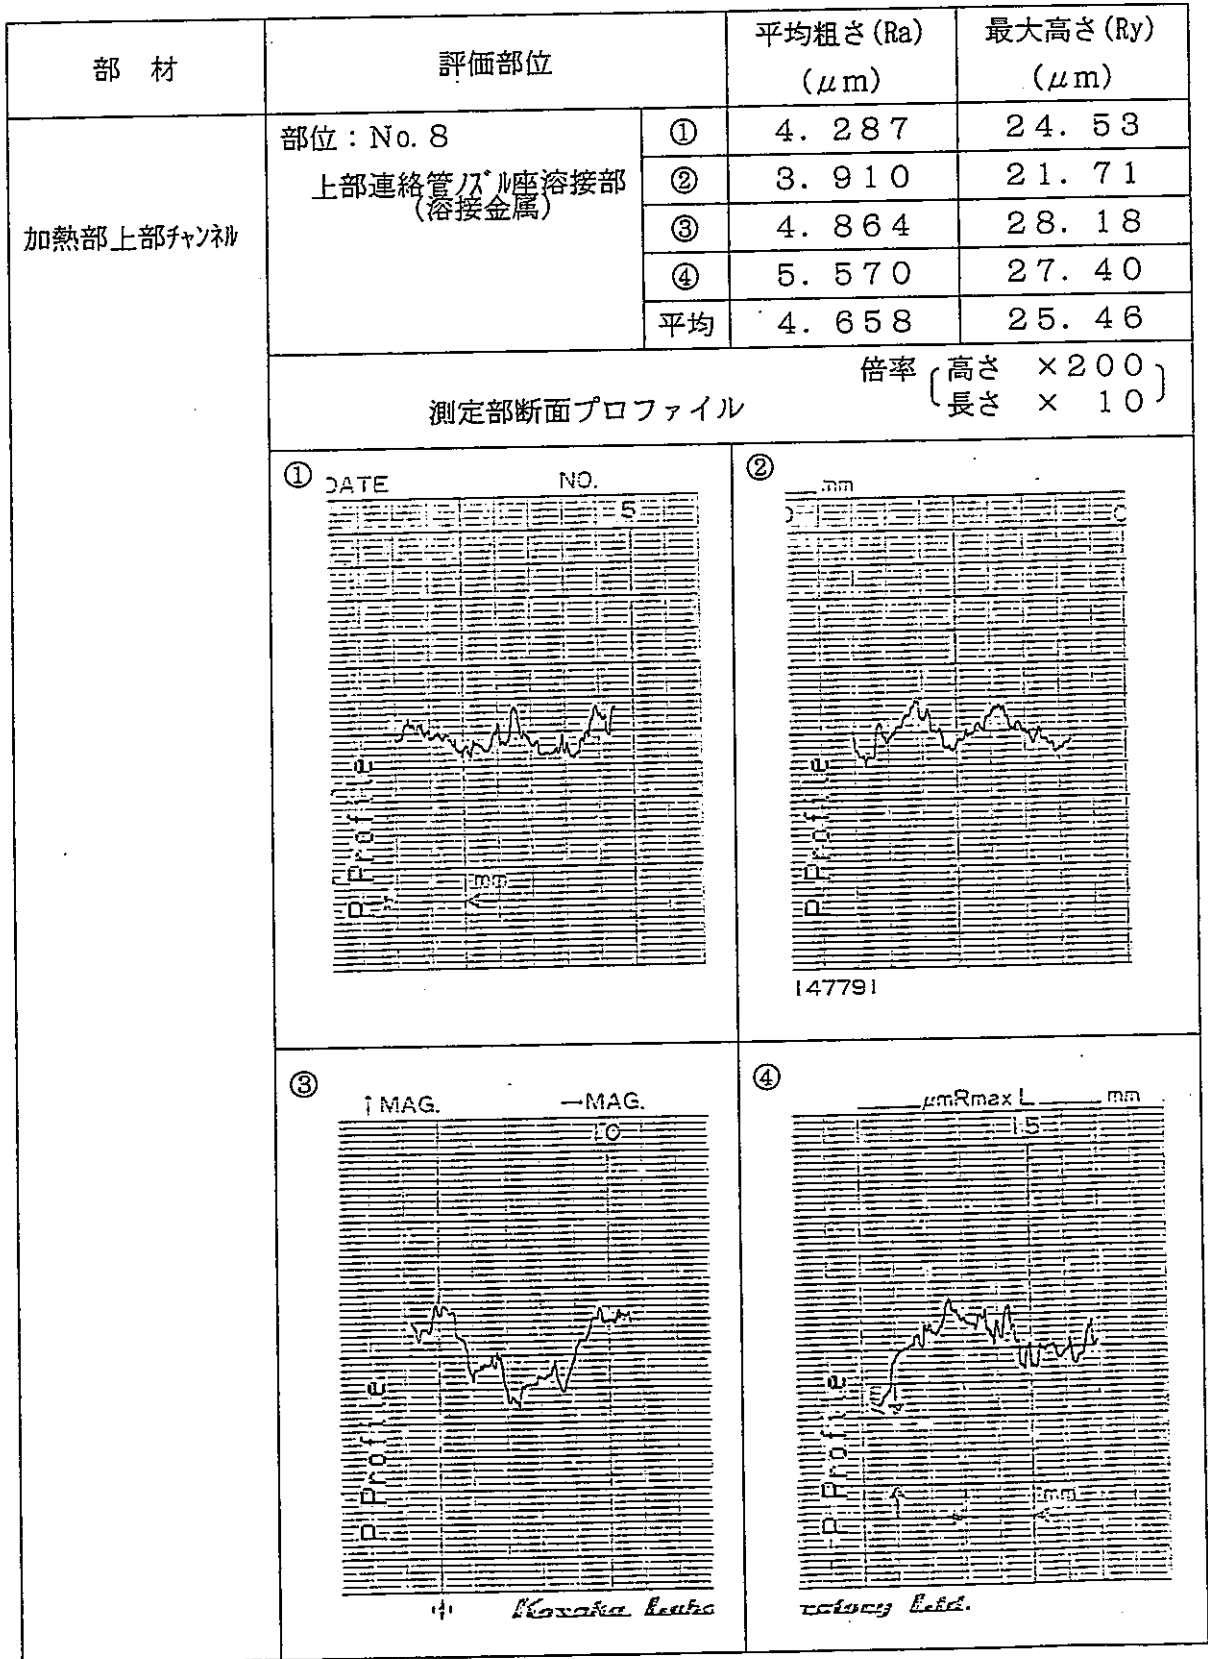 部 材
評価部位
平均粗さ(Ra)
(μm)
最大高さ(Ry)
(μm)
加熱部上部チャンネル
部位：No. 8
上部連絡管ノズル座溶接部
(溶接金属)
① 4. 287 24. 53
② 3. 910 21. 71
③ 4. 864 28. 18
④ 5. 570 27. 40
平均 4. 658 25. 46
測定部断面プロファイル
倍率 高さ ×200
長さ × 10
①
DATE NO.
5
P Profile
mm
②
mm
P Profile
147791
③
↑MAG. →MAG.
10
P Profile
Kosaka Labo
④
μmRmax L mm
15
P Profile
mm
ratory Ltd.